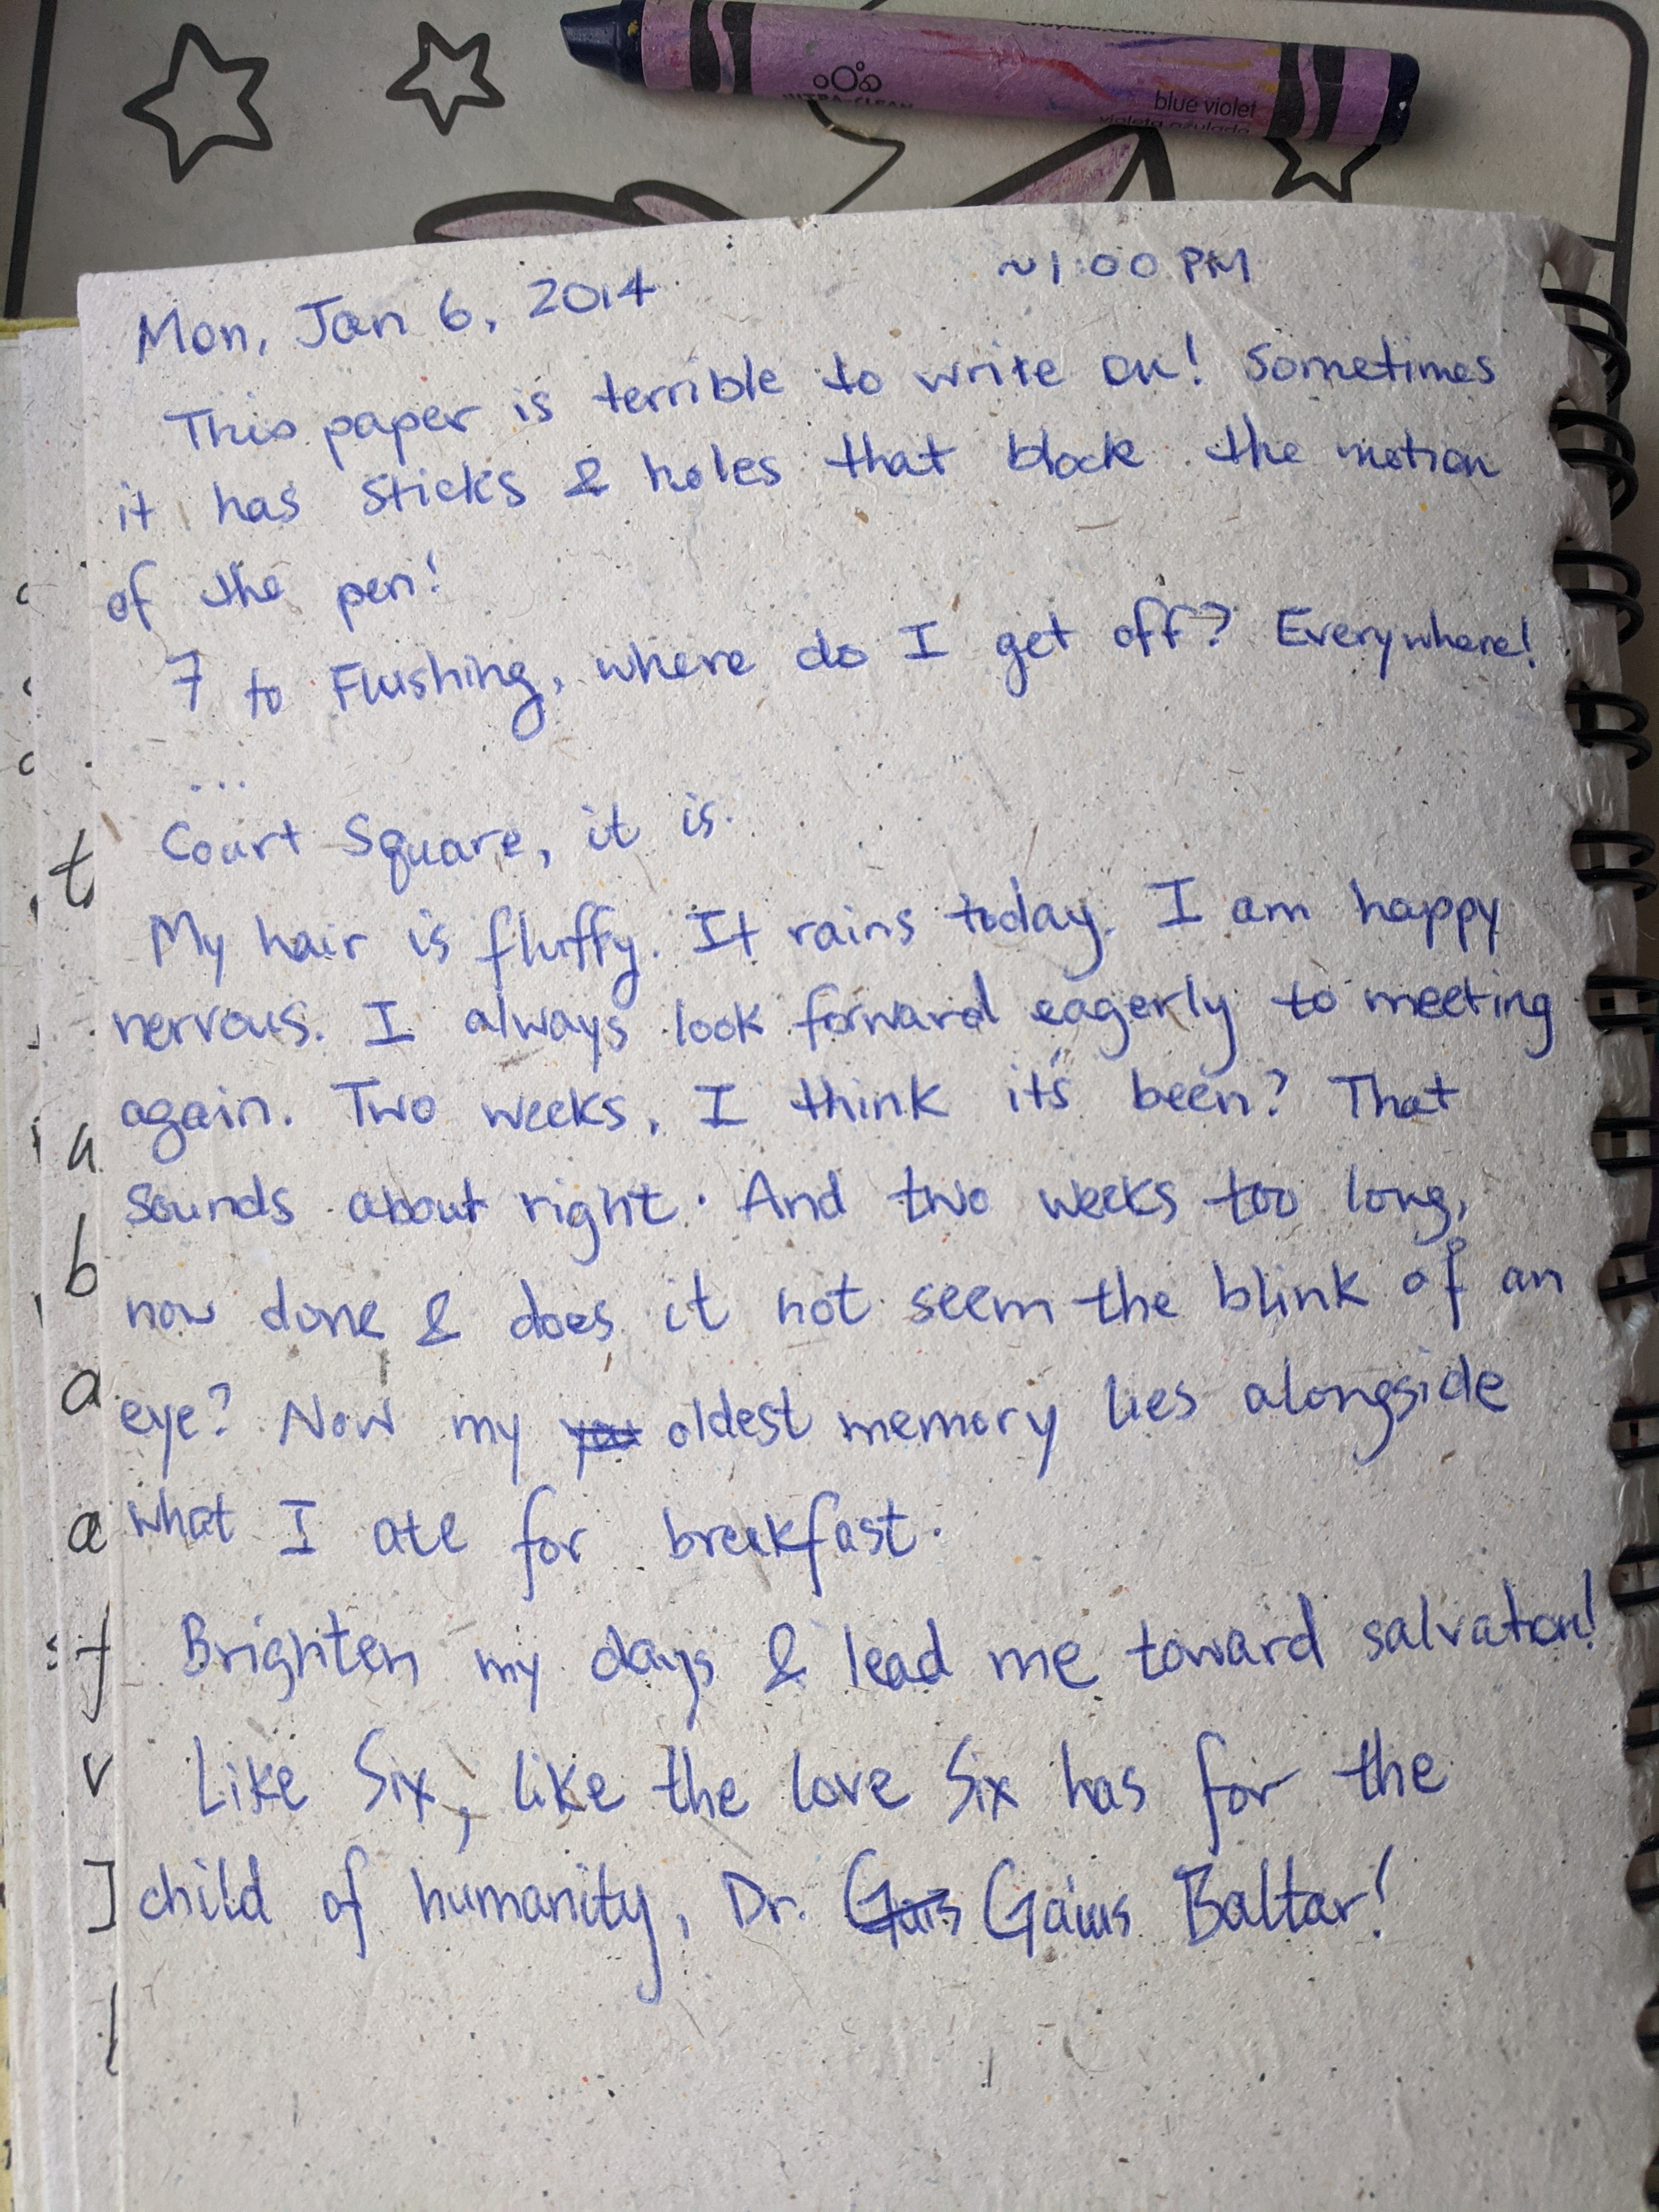 blue violet
violeta azulado
Mon, Jan 6, 2014 ~1:00 PM
This paper is terrible to write on! Sometimes
it has sticks & holes that block the motion
of the pen!
7 to Flushing, where do I get off? Everywhere!
...
Court Square, it is.
My hair is fluffy. It rains today. I am happy
nervous. I always look forward eagerly to meeting
again. Two weeks, I think it's been? That
sounds about right. And two weeks too long,
now done & does it not seem the blink of an
eye? Now my you oldest memory lies alongside
what I ate for breakfast.
Brighten my days & lead me toward salvation!
Like Six, like the love Six has for the
child of humanity, Dr. Gais Gaius Baltar!